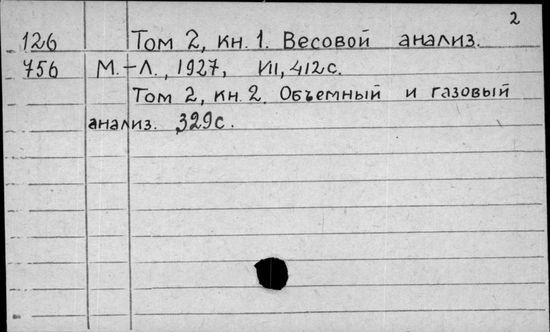 2
126 Том 2, кн. 1. Весовой анализ.
756 М.-Л., 1927, VII, 412 с.
Том 2, кн. 2. Объемный и газовый
анализ. 329 с.